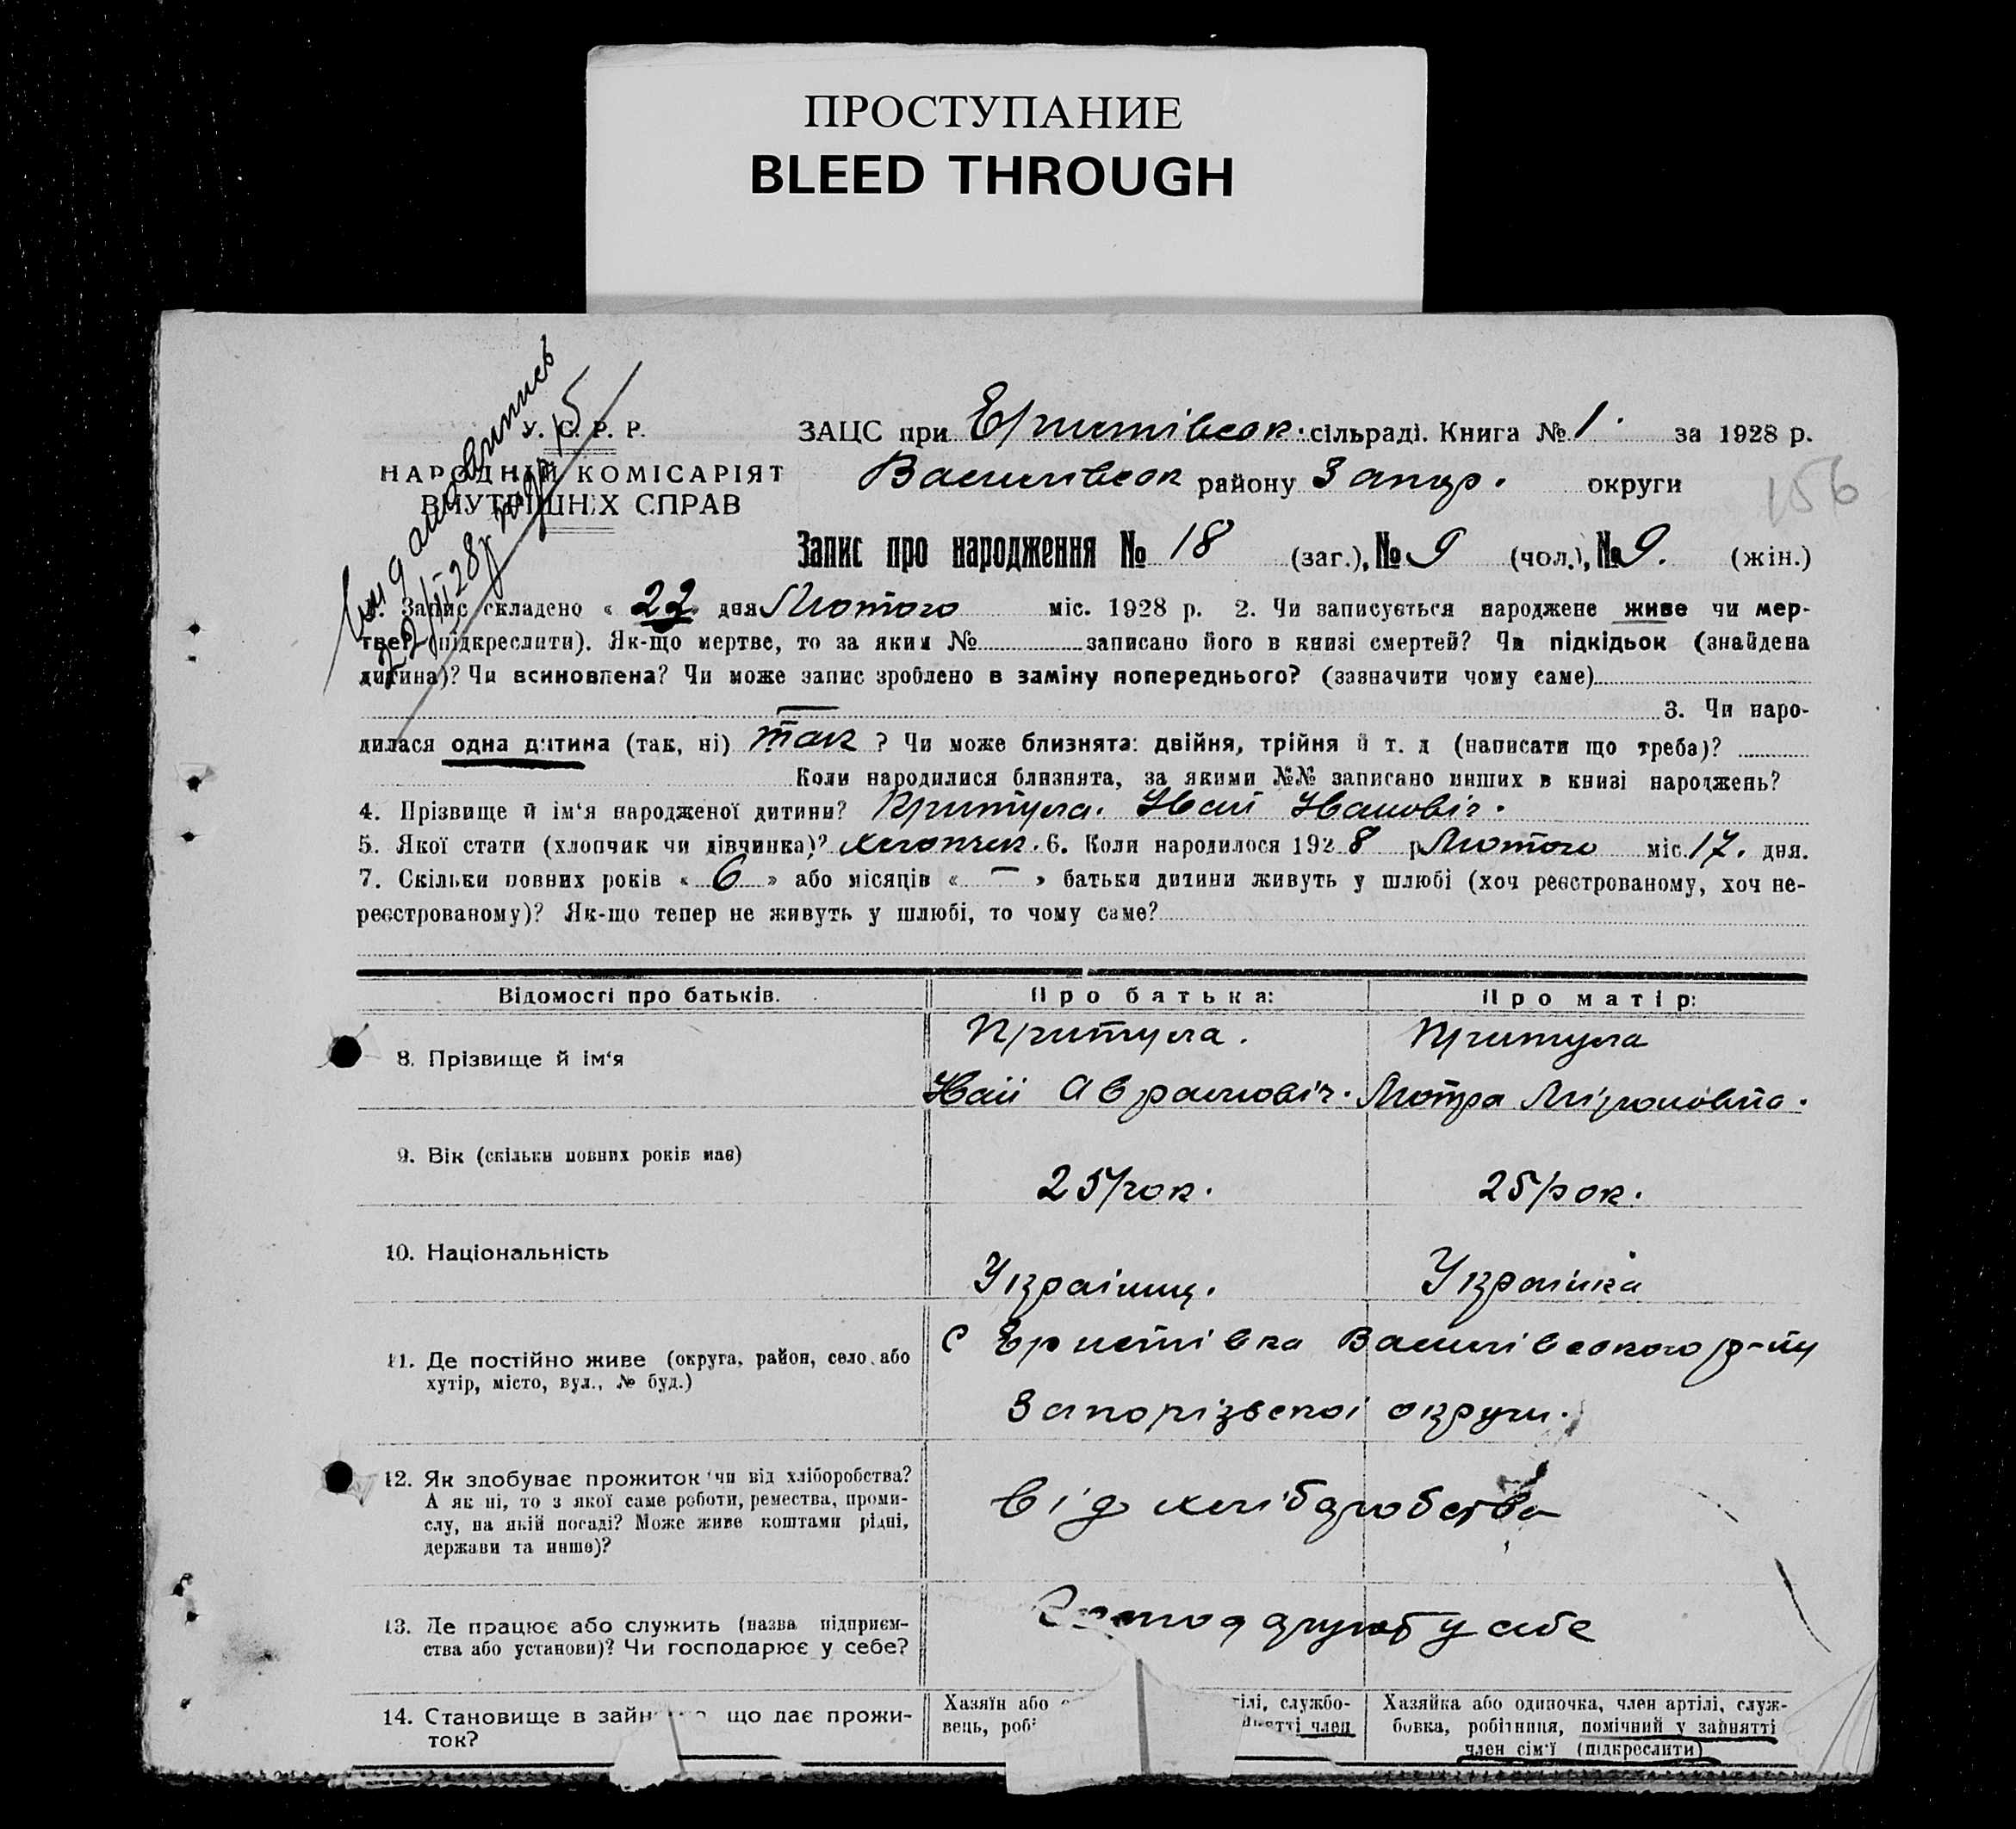 ПРОСТУПАНИЕ
BLEED THROUGH
Видана випись
22/II 28р.
У. С. Р. Р.
НАРОДНІЙ КОМІСАРІЯТ
ВНУТРІШНІХ СПРАВ
ЗАЦС при Єристівськ. сільраді. Книга № 1. за 1928 р.
Василівськ району Запор. округи
156
Запис про народження № 18 (заг.), № 9 (чол.), № 9. (жін.)
1. Запис складено « 22 » дня Лютого міс. 1928 р. 2. Чи записується народжене живе чи мер-
тве? (підкреслити). Як-що мертве, то за яким № записано його в книзі смертей? Чи підкідьок (знайдена
дитина)? Чи всиновлена? Чи може запис зроблено в заміну попереднього? (зазначити чому саме)
3. Чи наро-
дилася одна дитина (так, ні) так ? Чи може близнята: двійня, трійня й т. д (написати що треба)?
Коли народилися близнята, за якими №№ записано инших в книзі народжень?
4. Прізвище й ім'я народженої дитини? Притула. Іван Іванович.
5. Якої стати (хлопчик чи дівчинка)? хлопчик. 6. Коли народилося 1928 р Лютого міс. 17. дня.
7. Скільки повних років « 6 » або місяців « — » батьки дитини живуть у шлюбі (хоч реєстрованому, хоч не-
реєстрованому)? Як-що тепер не живуть у шлюбі, то чому саме?
Відомості про батьків. Про батька: Про матір:
8. Прізвище й ім'я Притула. Притула
Іван Аврамовіч. Мотра Мироновна.
9. Вік (скільки повних років має)
25/рок. 25/рок.
10. Національність
Українц. Українка
11. Де постійно живе (округа, район, село або
хутір, місто, вул., № буд.)
С Єристівка Василівського р-ну
Запорізської округи.
12. Як здобуває прожиток чи від хліборобства?
А як ні, то з якої саме роботи, ремества, проми-
слу, на якій посаді? Може живе коштами рідні,
держави та инше)?
від хліборобства
13. Де працює або служить (назва підприєм-
ства або установи)? Чи господарює у себе?
у себе
14. Становище в що дає прожи-
ток?
Хазяїн або службо-
вець, член
Хазяйка або одиночка, член артілі, служ-
бовка, робітниця, помічний у зайнятті
член сім'ї (підкреслити)